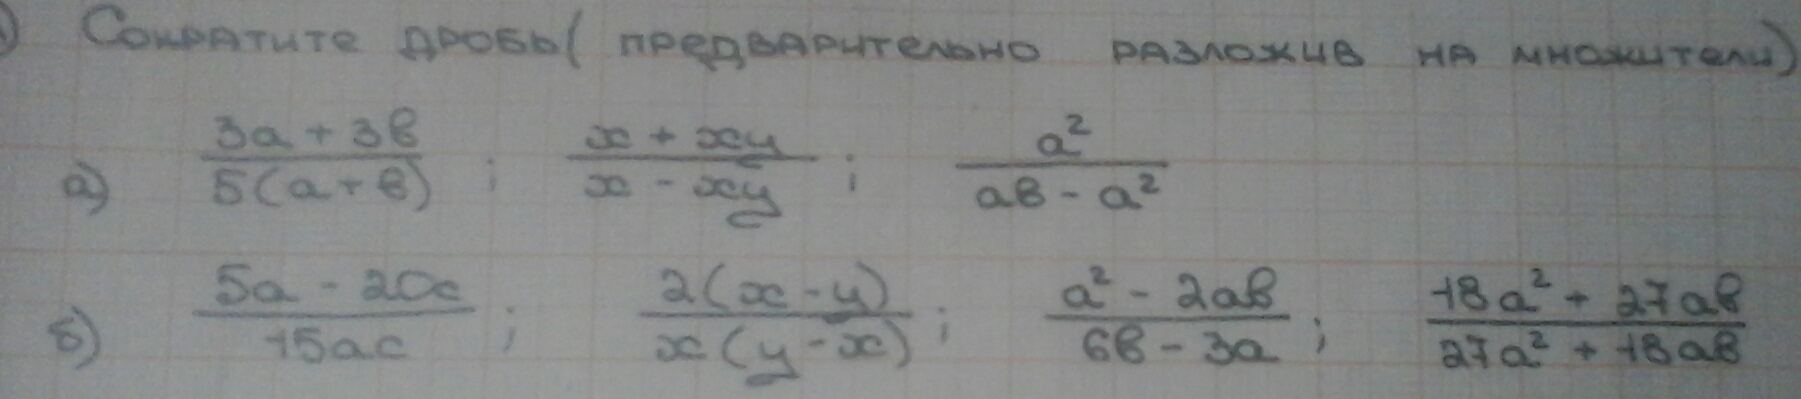 ) Сократите дробы( предварительно разложив на множители)
а) (3a + 3b)/(5(a + b)) ; (x + xy)/(x - xy) ; a²/(ab - a²)
б) (5a - 20c)/(15ac) ; (2(x - y))/(x(y - x)) ; (a² - 2ab)/(6b - 3a) ; (18a² + 27ab)/(27a² + 18ab)